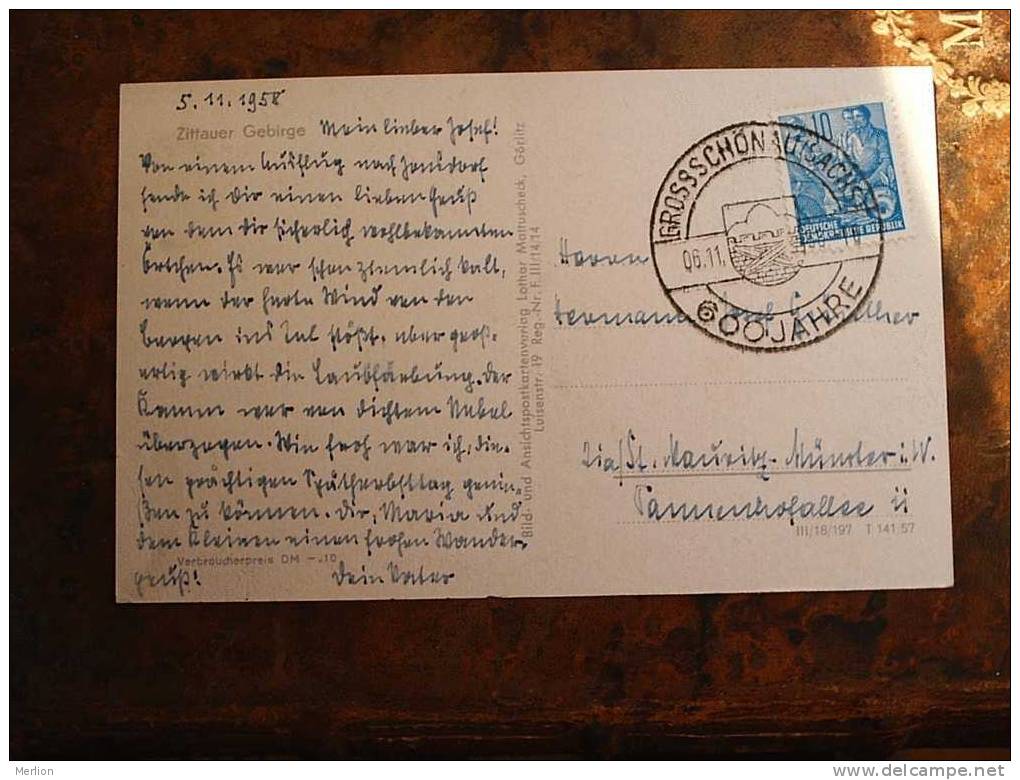 5.11.1958
Zittauer Gebirge Mein lieber Josef!
Von einem Ausflug nach Jonsdorf
sende ich Dir einen lieben Gruß
von dem dir sicherlich wohlbekannten
Örtchen. Es war schon ziemlich kalt,
wenn der harte Wind von den
Bergen ins Tal stößt, aber groß-
artig wirkt die Laubfärbung. Der
Kamm war von dichtem Nebel
überzogen. Wie froh war ich, die-
sen prächtigen Spätherbsttag genie-
ßen zu können. Dir, Maria und
dem Kleinen einen frohen Wander-
Verbraucherpreis DM -.10
gruß! Dein Vater
Bild- und Ansichtspostkartenverlag Lothar Mattuscheck, Görlitz
Luisenstr. 19 Reg.-Nr. F.III/14/14
GROSSSCHÖNAU (SACHS)
06.11.
600 JAHRE
10
DEUTSCHE
DEMOKRATISCHE REPUBLIK
Herrn
Hermann
St. Mauritz-Münster i. W.
Tannenhofallee 11
III/18/197 T 141 57
M
Merlion
delcampe.net